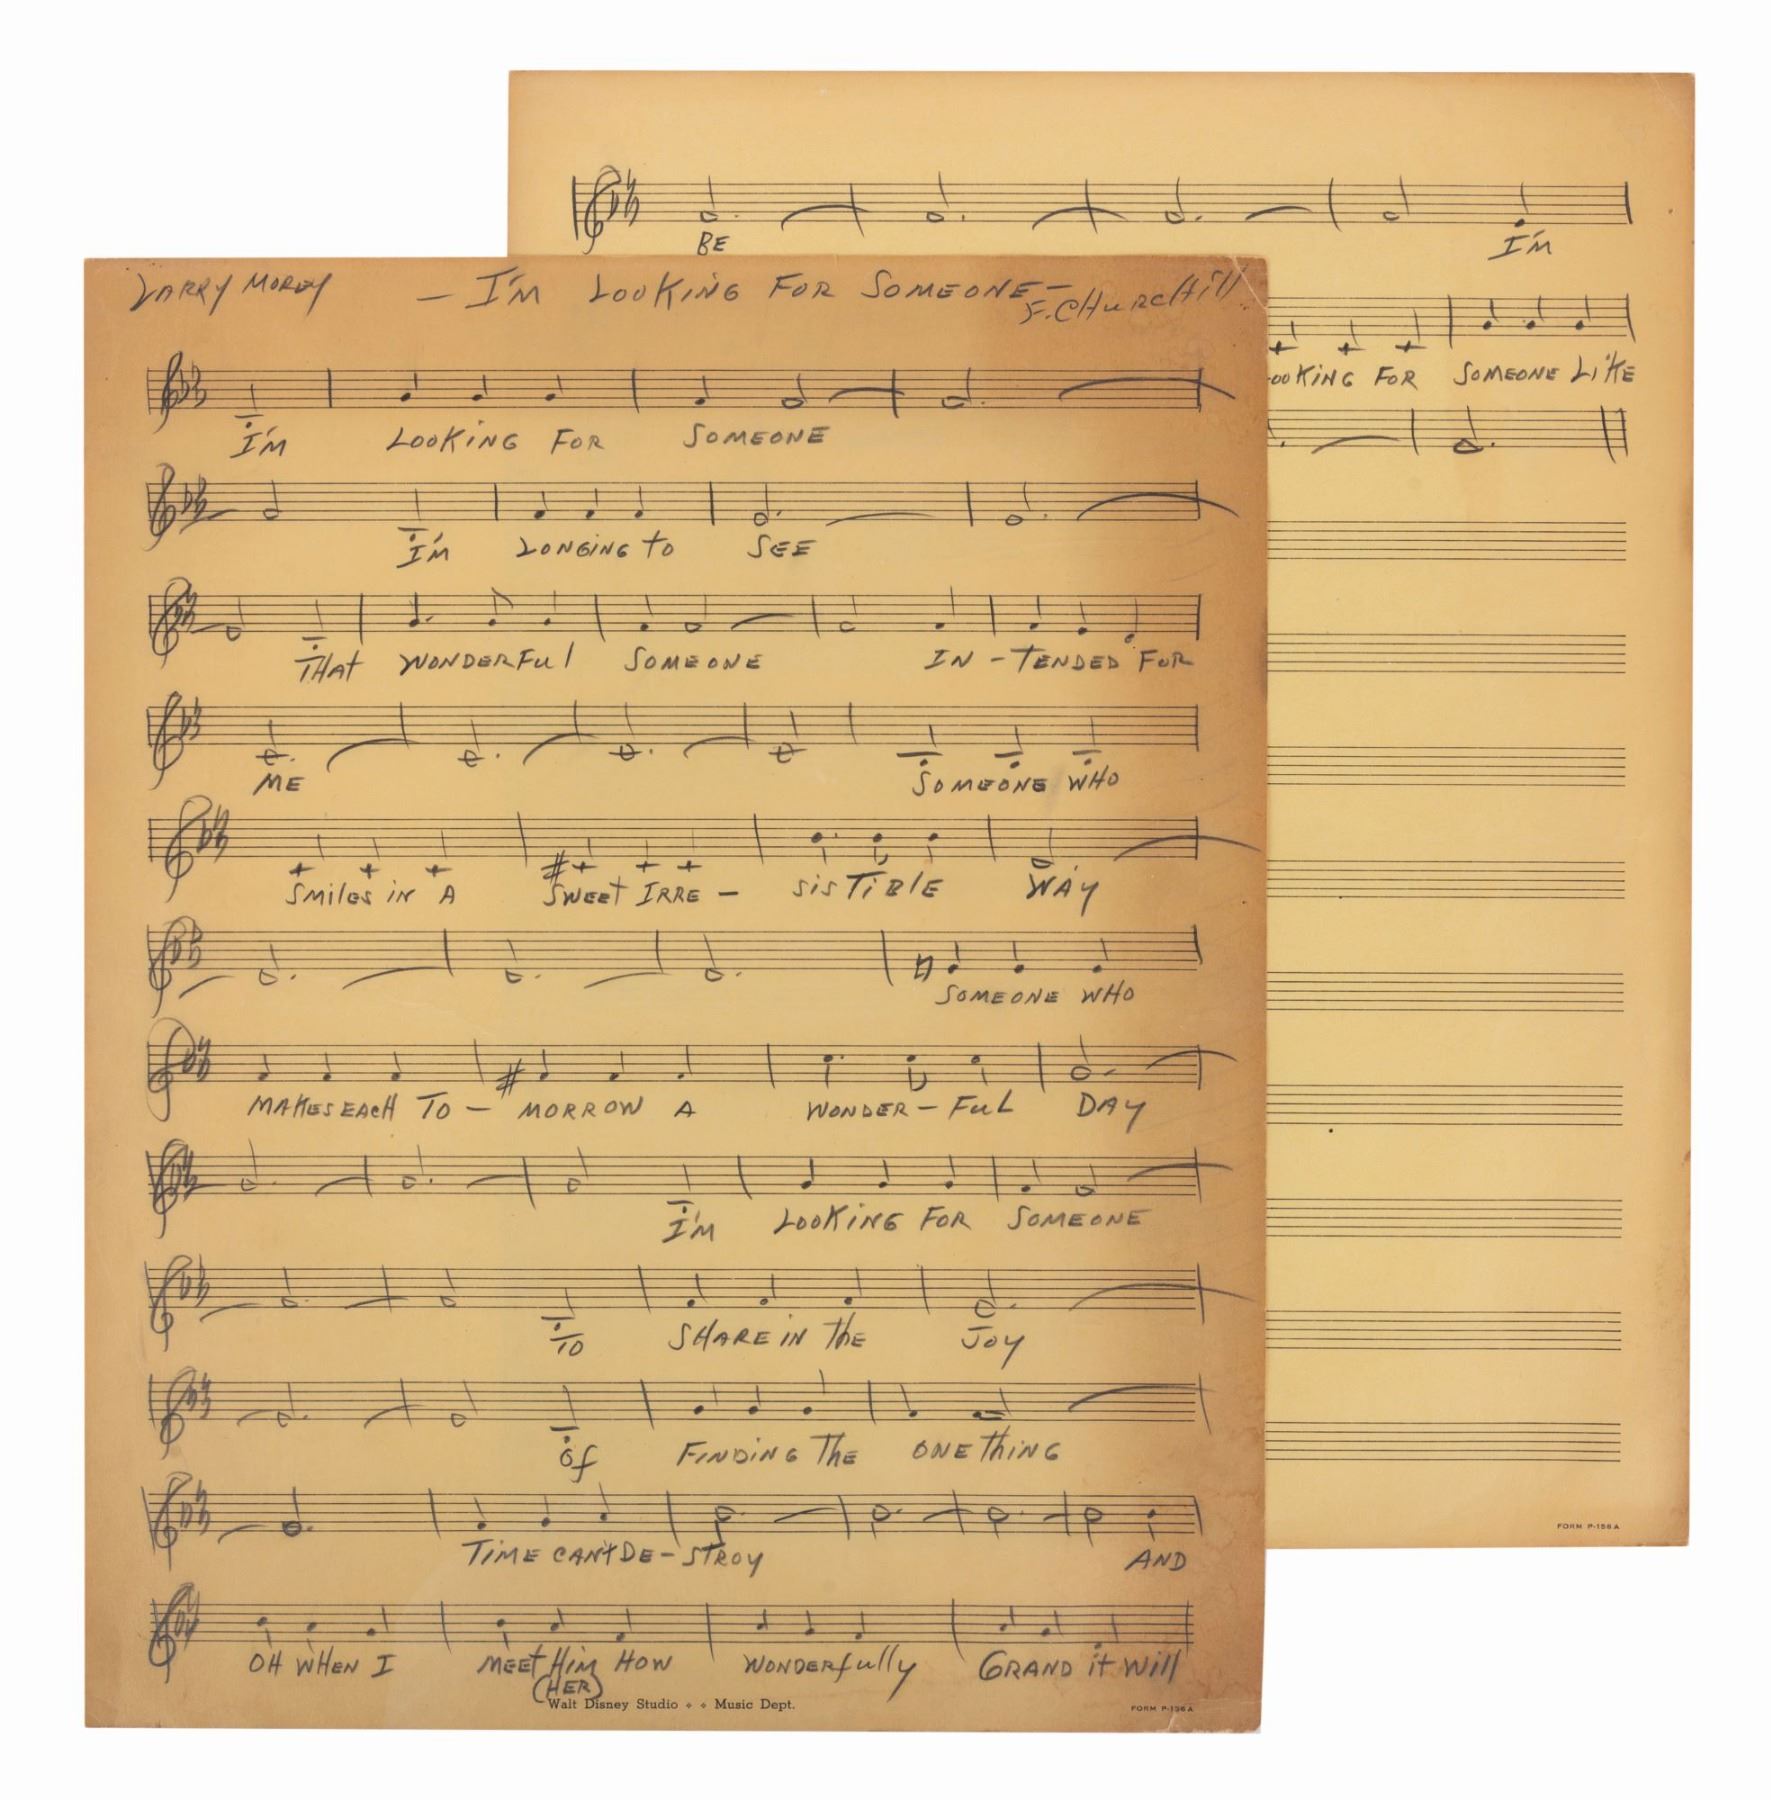 BE I'M
OOKING FOR SOMEONE LIKE
LARRY MOREY — I'M LOOKING FOR SOMEONE — F. CHURCHILL
I'M LOOKING FOR SOMEONE
I'M LONGING TO SEE
THAT WONDERFUL SOMEONE IN - TENDED FOR
ME SOMEONE WHO
SMILES IN A SWEET IRRE - SISTIBLE WAY
SOMEONE WHO
MAKES EACH TO - MORROW A WONDER - FUL DAY
I'M LOOKING FOR SOMEONE
TO SHARE IN THE JOY
OF FINDING THE ONE THING
TIME CAN'T DE - STROY AND
OH WHEN I MEET HIM HOW WONDERFULLY GRAND IT WILL
(HER)
Walt Disney Studio Music Dept. FORM P-156 A
FORM P-156 A